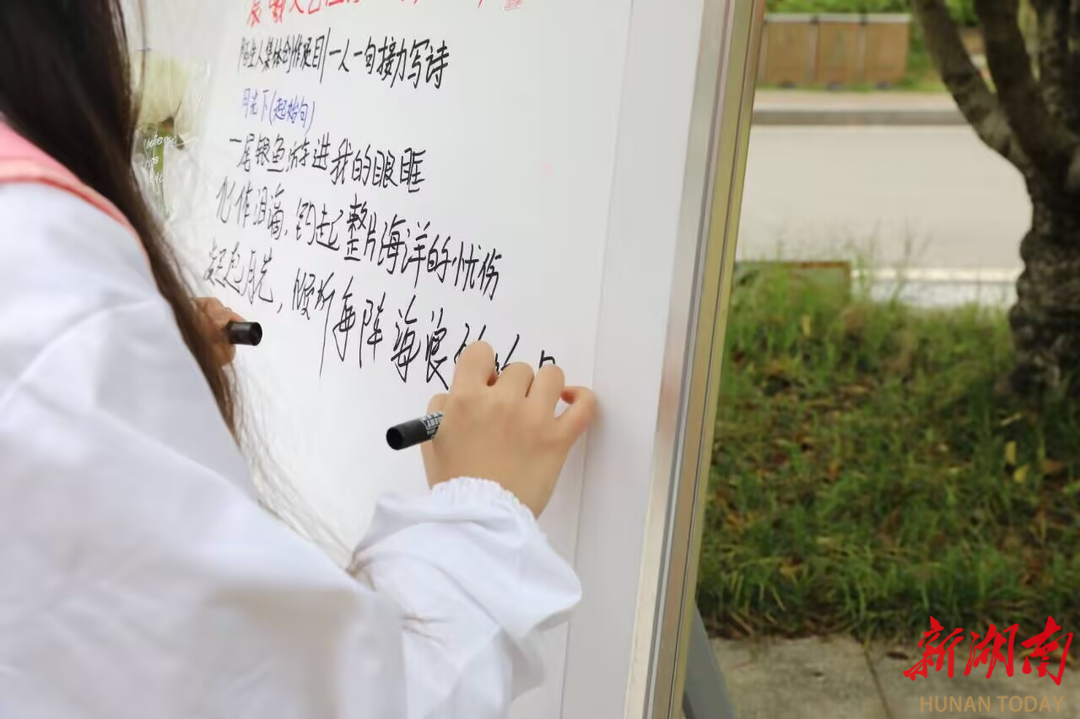 陌生人集体创作展目|一人一句接力写诗
月光下(起始句)
一尾银鱼游进我的眼眶
化作泪滴,钓起整片海洋的忧伤
凝起月光,倾听每阵海浪
新湖南
HUNAN TODAY